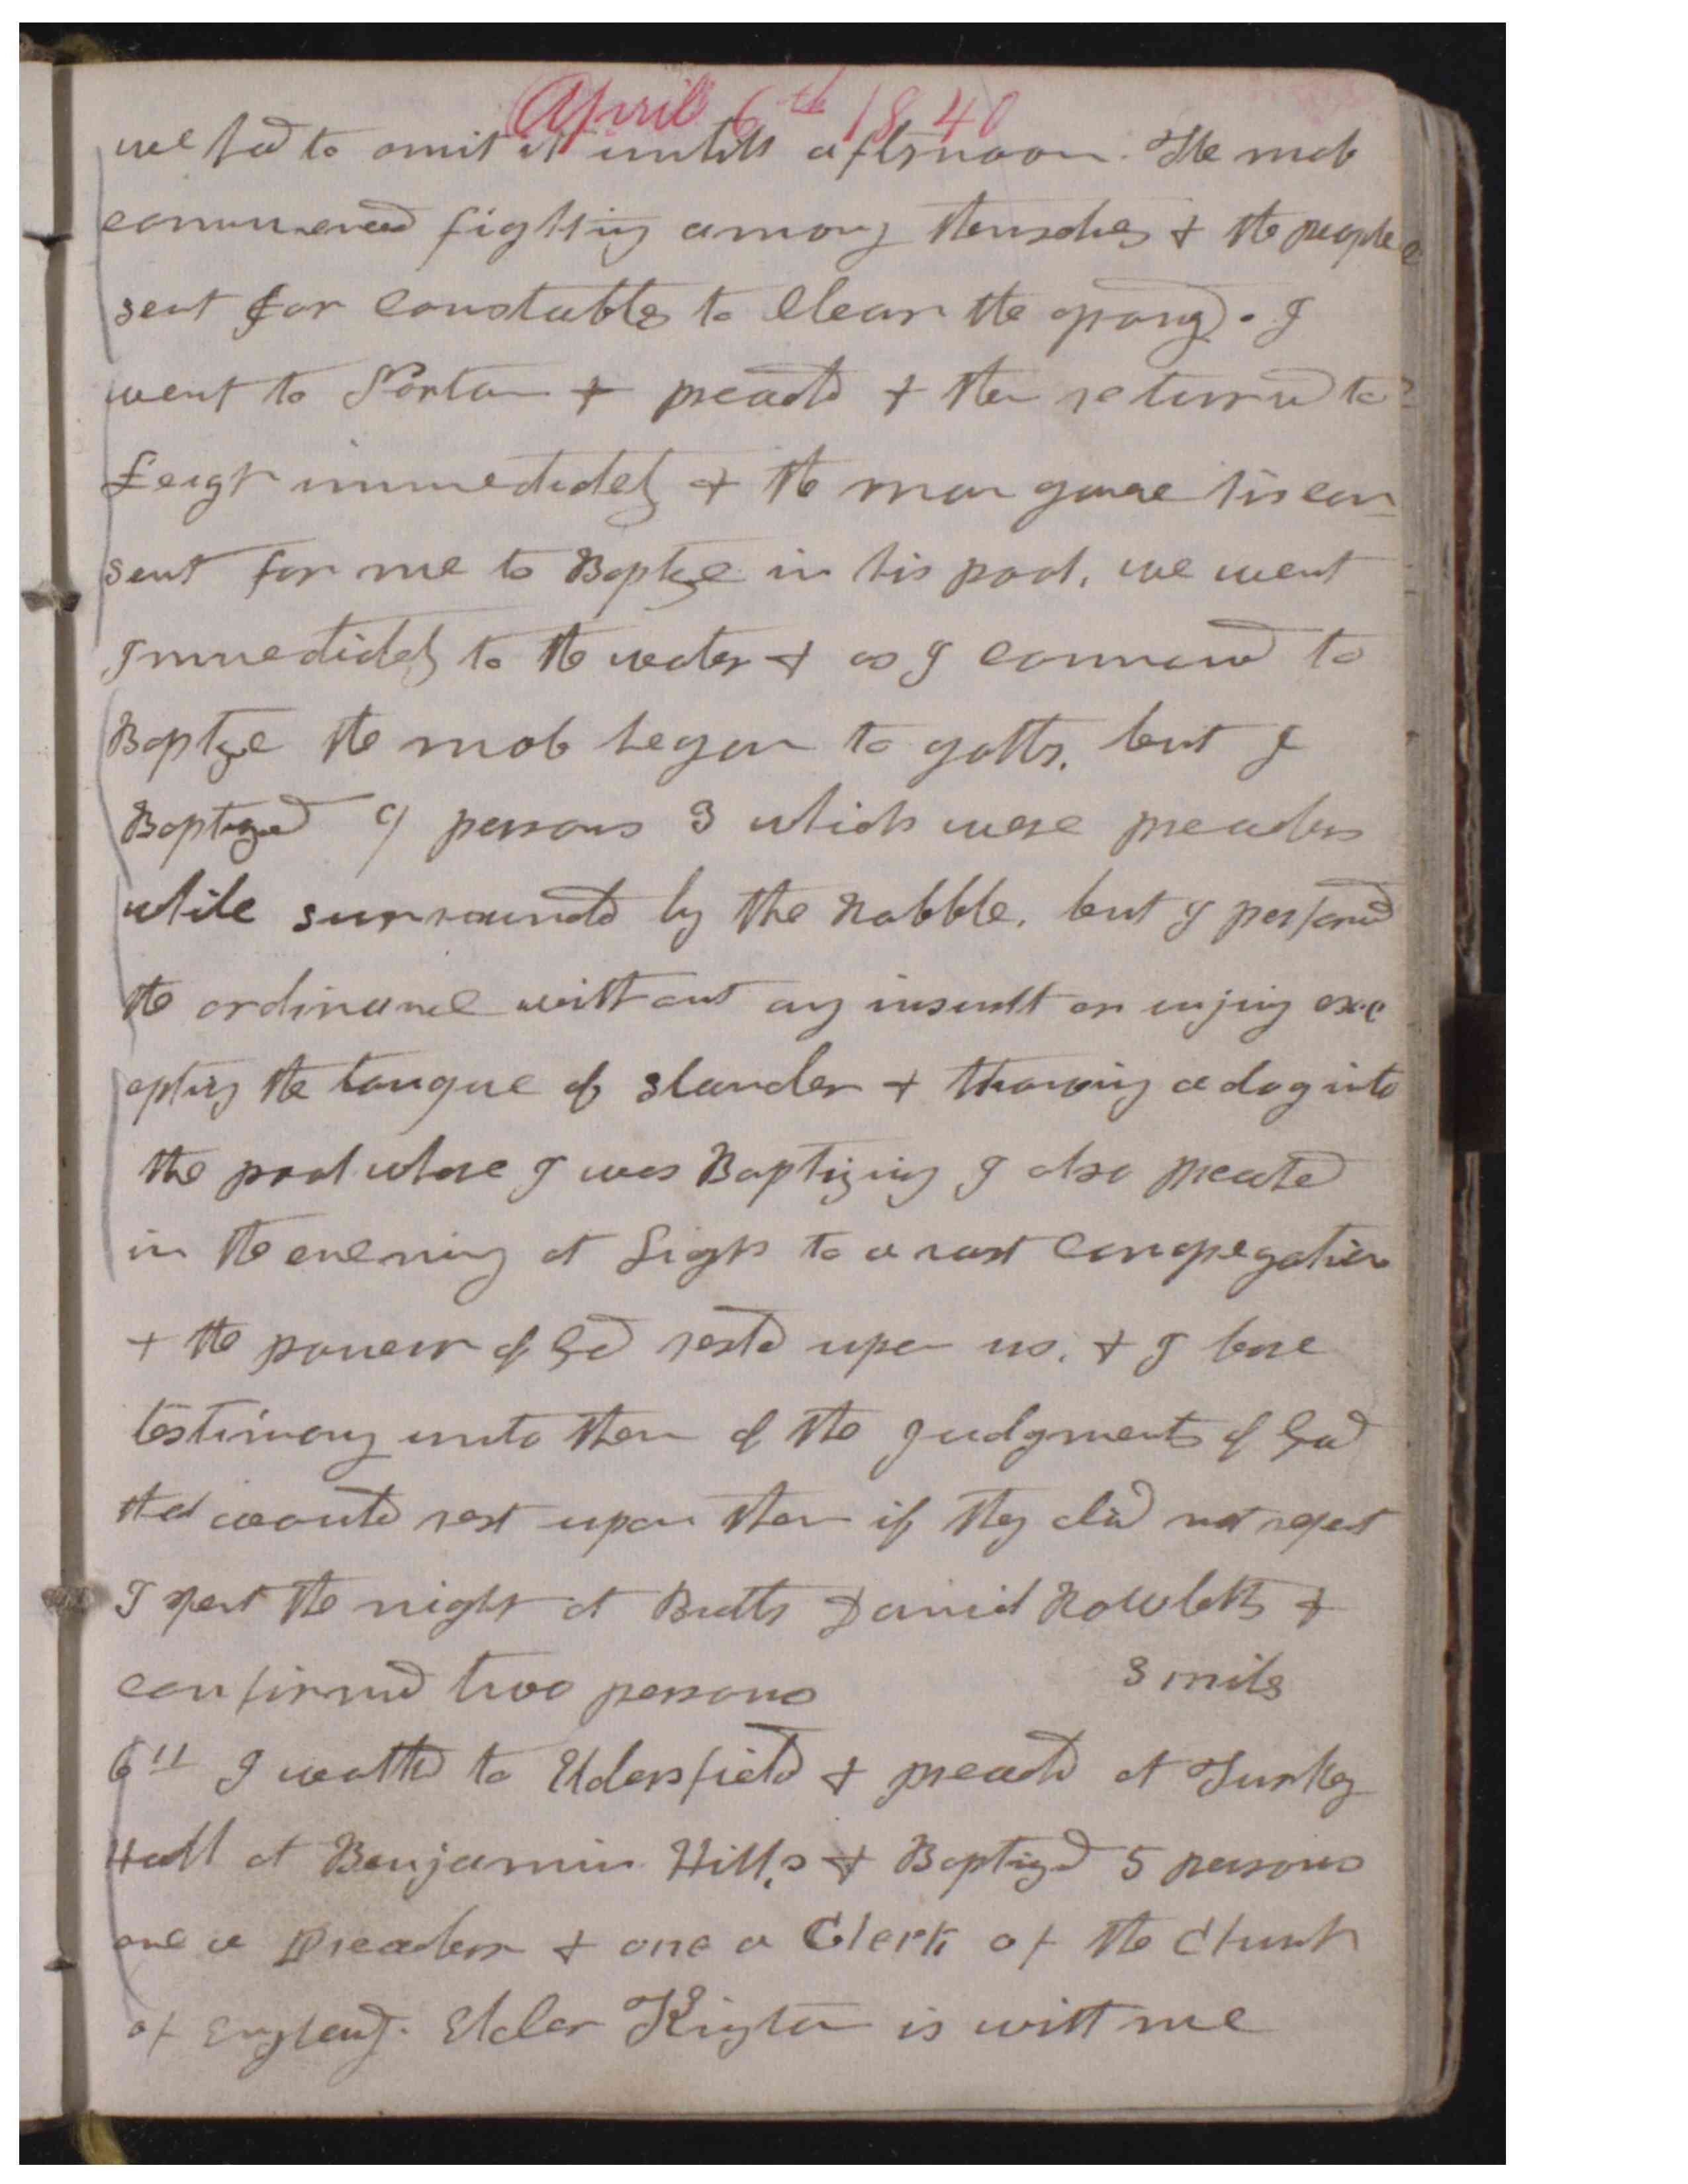 April 6th 1840
we had to omit it untill afternoon. The mob
commenced fighting among themselves & the people
sent for constables to clear the ground. I
went to Norton & preachd & then returnd to
Leigh immediately & the man gavae his con-
sent for me to Baptize in his pool, we went
Immediately to the water & as I commencd to
Baptize the mob began to gather, but I
Baptized 9 persons 3 which were preachers
while surrounded by the Rabble. but I performd
the ordinance without any insult or injury exc
epting the tongue of slander & throwing a dog into
the pool whare I was Baptizing I also preached
in the evening at Ligh to a vast congregation
& the power of God rested upon us. & I bore
testimony unto them of the Judgments of God
that would rest upon them if they did not repent
I spent the night at Brother Daniel Rowletts &
confirmed two persons 3 mils
6th I walked to Eldersfield & preachd at Turkey
Hall at Benjamin Hill,s & Baptized 5 persons
one a Preacher & one a Clerk of the Church
of England. Elder Kington is with me